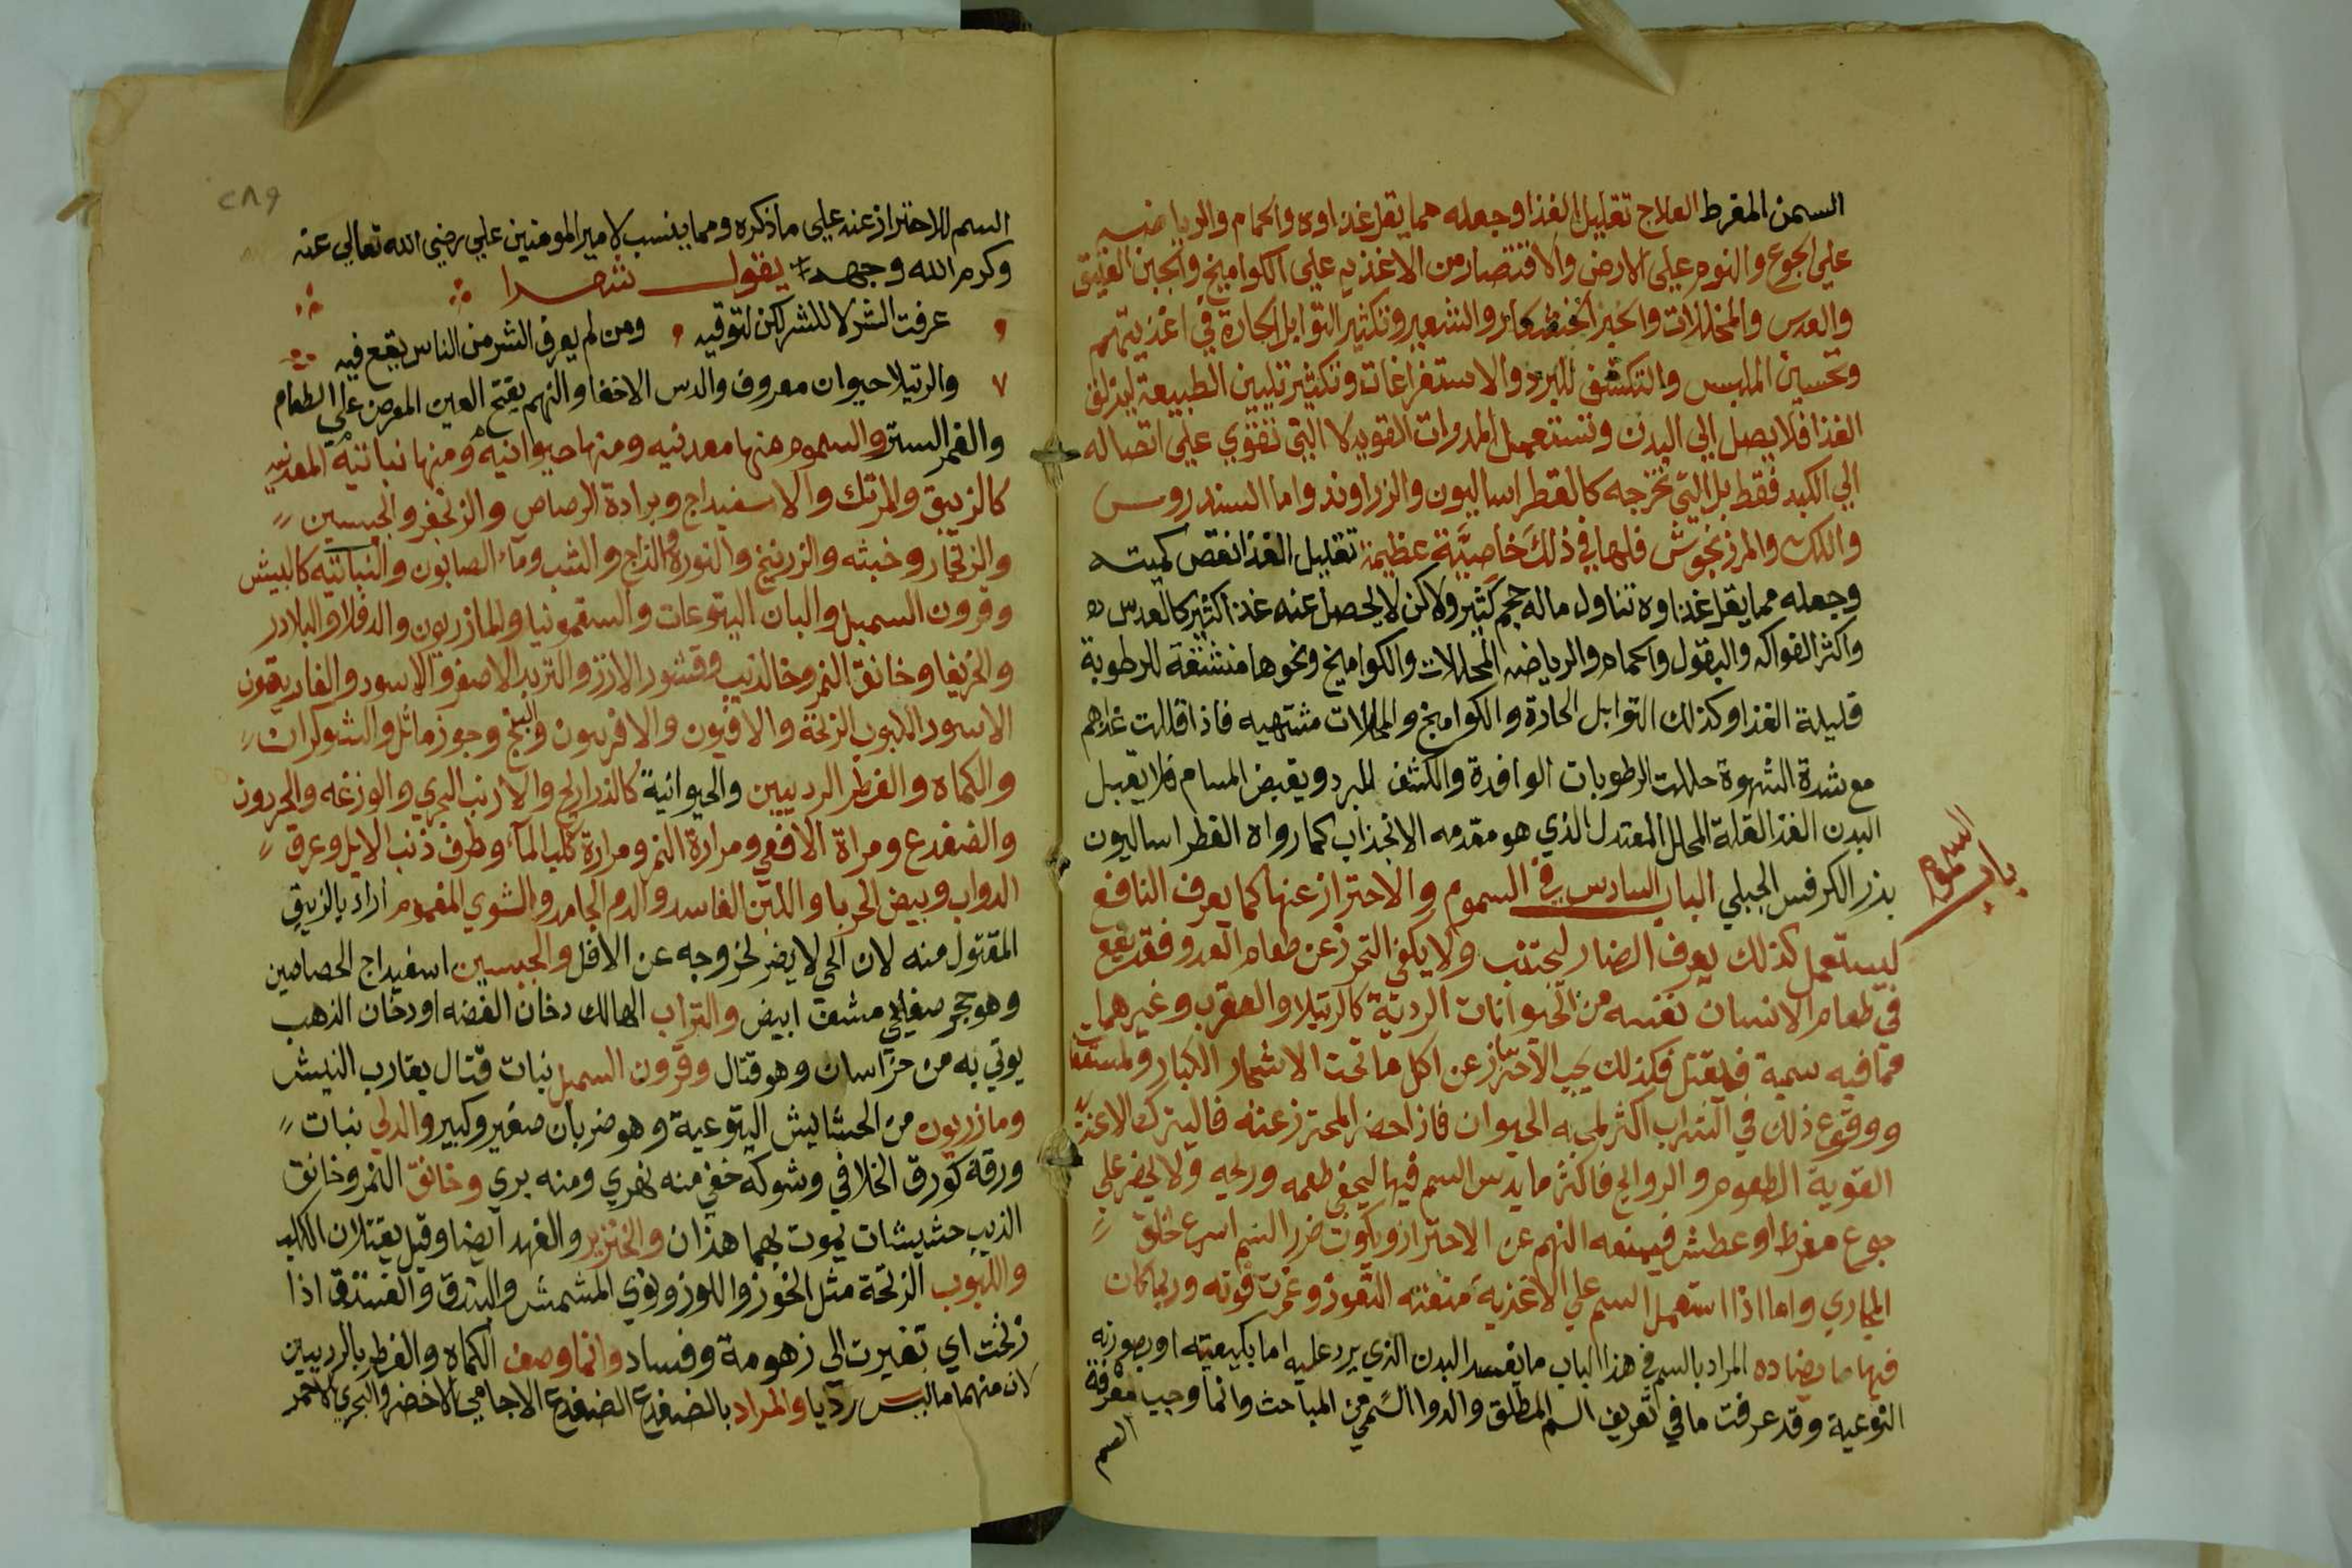 السمن المفرط العلاج تقليل الغذا وجعله مما يقل غذاوه والحمام والرياضه
علي الجوع والنوم علي الارض والاقتصار من الاغذيه علي الكواميخ والجبن العتيق
والعدس والمخللات والخبز الخشكار والشعير وتكثير التوابل الحارة في اغذيتهم
وتحسين الملبس والتكشف للبرد والاستفراغات وتكثير تليين الطبيعة ليزلق
الغذا فلا يصل الي البدن وتستعمل المدرات القويه لا التي تقوي علي اتصاله
الي الكبد فقط بل التي تخرجه كالفطراساليون والزراوند واما السندروس
واللك والمرزنجوش فلها في ذلك خاصيَّة عظيمة تقليل الغذا نقص كميته
وجعله مما يقل غذاوه تناول ماله حجم كثير ولاكن لا يحصل عنه غذا كثير كالعدس
واكثر الفواكه والبقول والحمام والرياضه المحللات والكواميخ ونحوها منشفة للرطوبة
قليلة الغذا وكذلك التوابل الحادة والكواميخ والمخللات مشتهيه فاذا قللت غذاهم
مع شدة الشهوة حللت الرطوبات الوافدة والكشف للبرد ويقبض المسام فلا يقبل
البدن الغذا لقلة المحلل المعتدل الذي هو مقدمه الانجذاب كما رواه الفطراساليون
بذر الكرفس الجبلي الباب السادس في السموم والاحتراز عنها كما يعرف النافع
باب السموم
ليستعمل كذلك يعرف الضار ليجتنب ولا يكفي التحرز عن طعام العدو فقد يقع
في طعام الانسان نفسه من الحيوانات الردية كالرتيلا والعقرب وغيرهما
مما فيه سمية فيقتل فكذلك يجب الاحتراز عن اكل ما تحت الاشجار الكبار والمستقفات
ووقوع ذلك في الشراب اكثر لمحبه الحيوان فاذا حضر المحترز عنه فاليترك الاغذية
القوية الطعوم والروايح فاكثر ما يدس السم فيها ليخفي طعمه وريحه ولا يحضر علي
جوع مفرط او عطش فيمنعه النهم عن الاحتراز ويكون ضرر السم اسرع لخلق
المجاري واما اذا استعمل السم علي الاغذية منعته النفوذ وغمرت قوته وربما كان
فيها ما يضاده المراد بالسم في هذا الباب ما يفسد البدن الذي يرد عليه اما بكيفيته او بصورته
النوعية وقد عرفت ما في تعريف السم المطلق والدوا السمي من المباحث وانما وجب معرفة
السم
٢٨٩
السم للاحتراز عنه علي ما ذكره ومما ينسب لامير المومنين علي رضي الله تعالي عنه
وكرم الله وجهه يقول شعرا
عرفت الشر لا للشر لكن لتوقيه ومن لم يعرف الشر من الناس يقع فيه
والرتيلا حيوان معروف والدس الاخفا والنهم بفتح العين المعرض علي الطعام
والغمر الستر والسموم منها معدنيه ومنها حيوانيه ومنها نباتية المعدنيه
كالزيبق والمرتك والاسفيداج وبرادة الرصاص والزنجفر والجبسين
والزنجار وخبثه والزرنيخ والنورة والزاج والشب وماء الصابون والنباتيه كالبيش
وقرون السمبل والبان اليتوعات والسقمونيا والمازريون والدفلا والبلادر
والخريفا وخانق النمر وخالذيب وقشور الارز والتربد الاصفر والاسود والغاريقون
الاسود اللبوب الزنخة والافيون والافربيون والبنج وجوز ماثل والشوكران
والكماه والفطر الرديين والحيوانية كالذراريح والارنب البحري والوزغه والحردون
والضفدع ومراة الافعي ومرارة النمر ومرارة كلب الماء وطرف ذنب الايل وعرق
الدواب وبيض الحربا واللبن الفاسد والدم الجامد والشوي المغموم اراد بالزيبق
المقتول منه لان الحي لا يضر لخروجه عن الافل والجبسين اسفيداج الحصاصين
وهو حجر صفايحي مشف ابيض والتراب الهالك دخان الفضه او دخان الذهب
يوتي به من خراسان وهو قتال وقرون السمبل نبات قتال يقارب البيش
ومازريون من الحشايش اليتوعية وهو ضربان صغير وكبير والدلي نبات
ورقه كورق الخلافي وشوكه خفي منه نهري ومنه بري وخانق النمر وخانق
الذيب حشيشات يموت بهما هذان والخنزير والفهد ايضا وقيل يقتلان الكلب
واللبوب الزنخة مثل الجوز واللوز ونوي المشمش والبندق والفستق اذا
زنخت اي تغيرت الي زهومة وفساد وانما وصف الكماه والفطر بالرديين
لان منهما ما ليس رديا والمراد بالضفدع الضفدع الاجامي الاخضر والبحري الاحمر